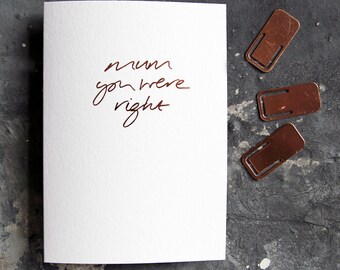 mum
you were
right